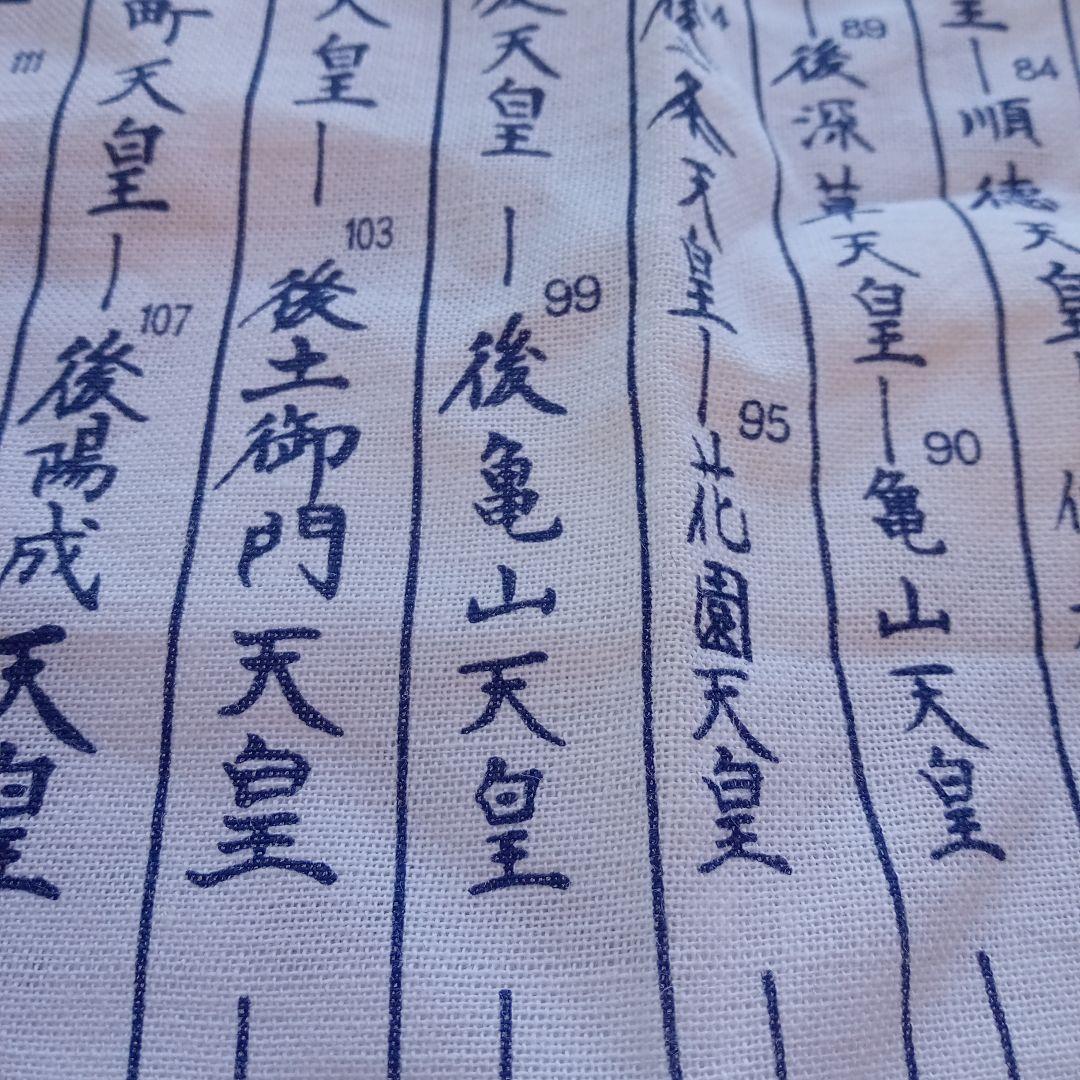 84順徳天皇
89後深草天皇—90亀山天皇—
天皇—95花園天皇—
天皇—99後亀山天皇—
皇—103後土御門天皇—
町天皇—107後陽成天皇